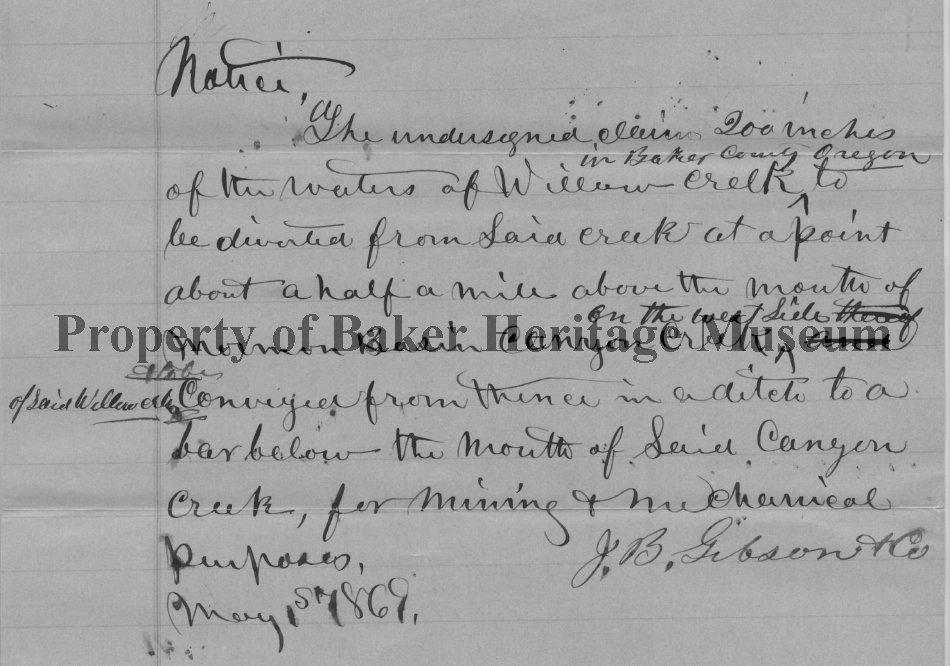 Notice,
The undersigned claim 200 inches
in Baker County Oregon
of the waters of Willow creek ^ to
be diverted from Said creek at a point
about a half a mile above the mouth of
on the west Side thereof
Property of Baker Heritage Museum
Mormon Basin Canyon Creek ^ and
to be
of Said Willow creek
Conveyed from thence in a ditch to a
bar below the Mouth of Said Canyon
Creek, for Mining & Mechanical
purposes,
J. B. Gibson & Co
May 1st 1869.